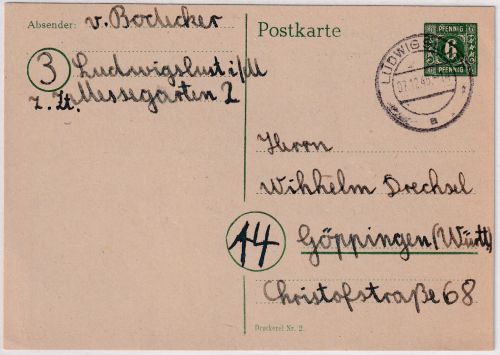 Absender: v. Bodecker
3 Ludwigslust i/M
z. Zt. Messegarten 2
Postkarte
PFENNIG
6
PFENNIG
LUDWIGS
07.12.45
a
Herrn
Wihhelm Drechsel
14 Göppingen (Württ)
Christofstraße 68
Druckerei Nr. 2.